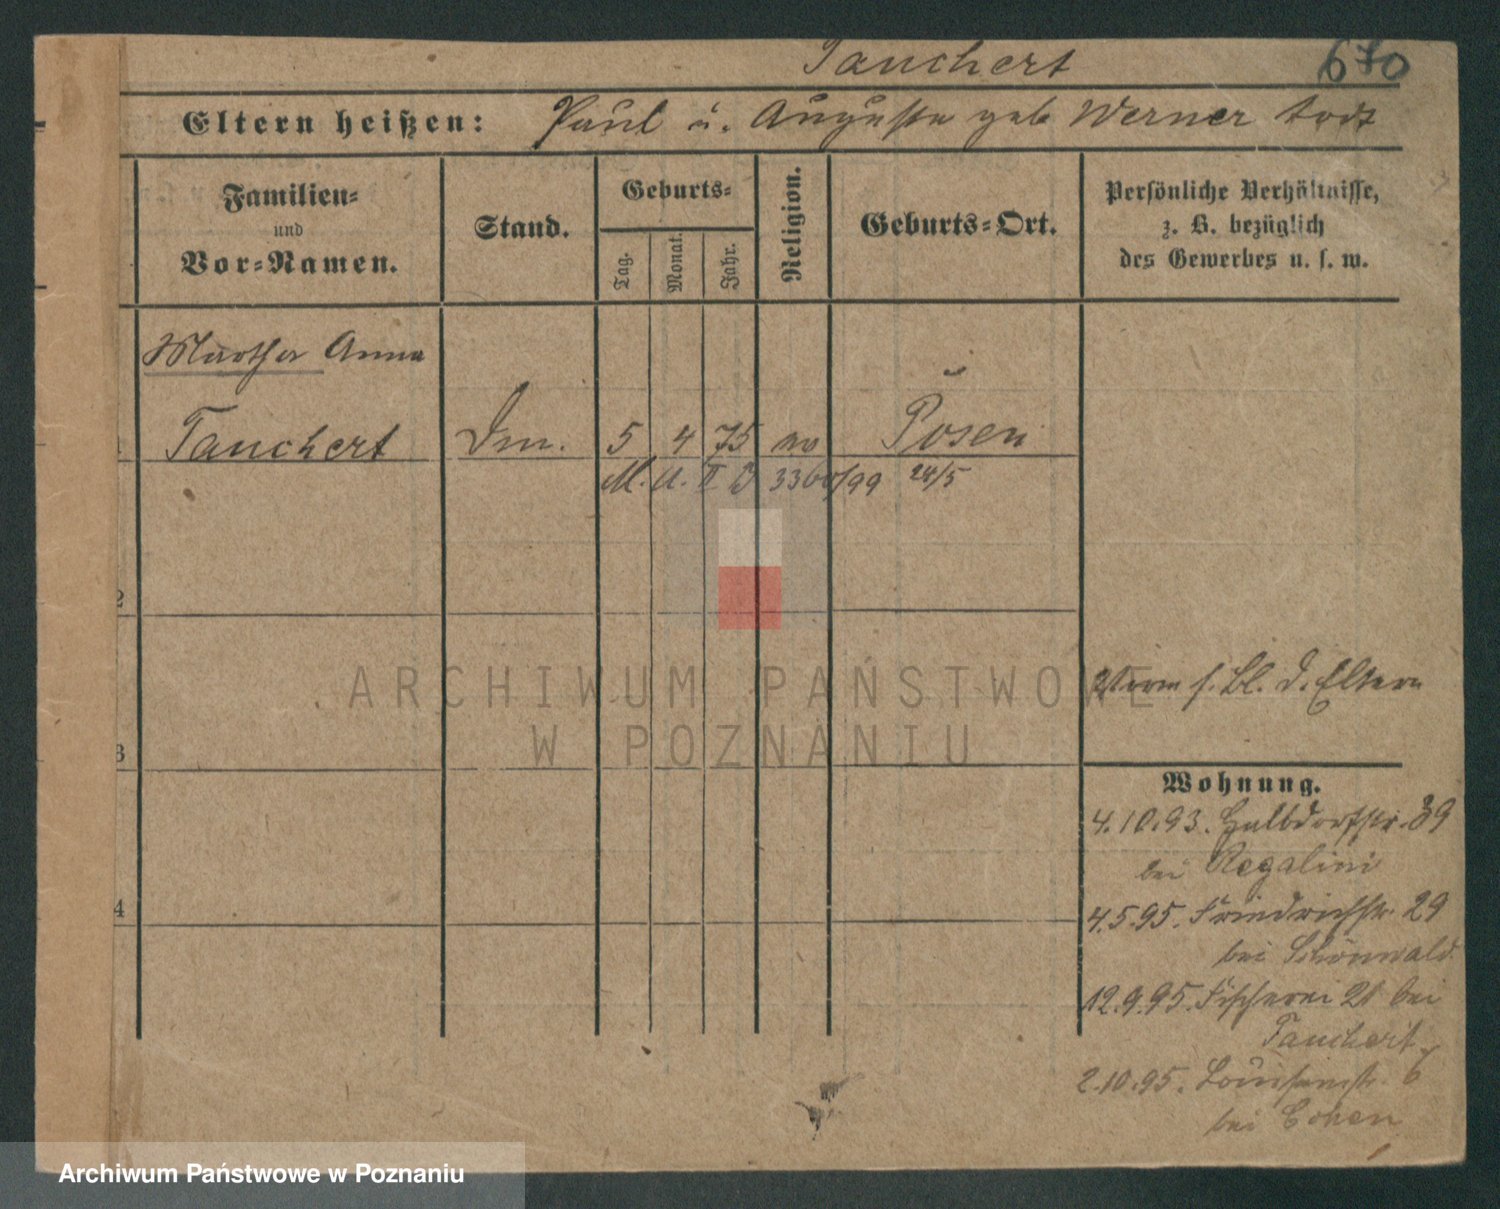 Tauchert 670
Eltern heißen: Paul u. Auguste geb Werner todt
Familien=
und
Vor=Namen.
Stand.
Geburts=
Tag.
Monat.
Jahr.
Religion.
Geburts=Ort.
Persönliche Verhältnisse,
z. B. bezüglich
des Gewerbes u. s. w.
Martha Anna
1 Tauchert 5 4 75 Posen
M. A. II 3360/99 28/5
2
ARCHIWUM PAŃSTWOWE
W POZNANIU
s. Bl. d. Eltern
3
Wohnung.
4.10.93. Halbdorfstr. 39
bei Regalini
4
4.5.95. Friedrichstr. 29
bei Schönwald
12.9.95. Fischerei 21 bei
Tauchert
2.10.95. Louisenstr. 6
bei Cohen
Archiwum Państwowe w Poznaniu